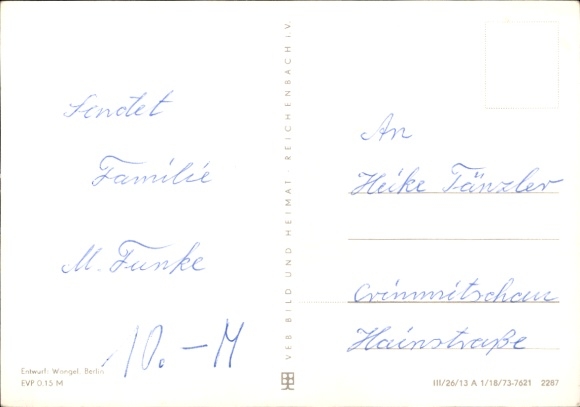 Sendet
Familie
M. Funke
10.-M
Entwurf: Wongel, Berlin
EVP 0.15 M
VEB BILD UND HEIMAT · REICHENBACH i.V.
An
Heike Tänzler
Crimmitschau
Hainstraße
III/26/13 A 1/18/73-7621 2287